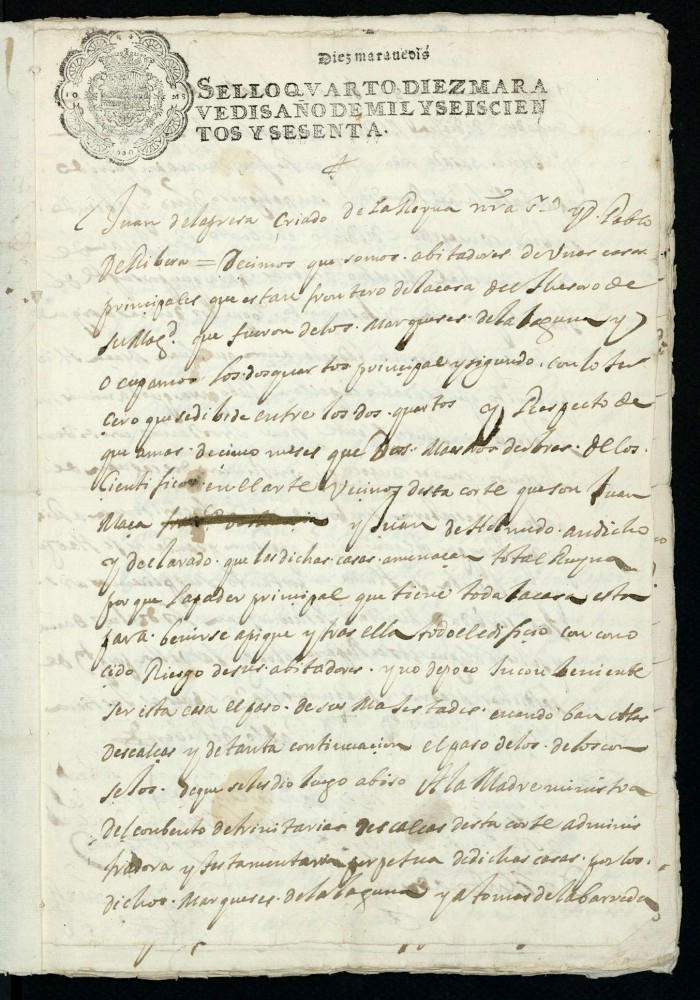 Diez marauedis
SELLO QVARTO DIEZ MARA
VEDIS AÑO DE MIL Y SEISCIEN
TOS Y SESENTA.
Juan de la presa Criado de La Reyna nrã s.ra y D. Pablo
de Ribera = Decimos que somos abitadores de Unas casas
principales que estan frontero de la casa del thesoro de
su Mag.d que fueron de los Marqueses de la laguna y
ocupamos los dos quartos principal y sigundo con lo ter
cero que se dibide entre los dos quartos y Respecto de
que a mas de cinco meses que Dos Maestros de obras de los
cientificos en el arte Vecinos desta corte que son Juan
Maça y Juan de an dicho
y declarado que las dichas casas amenaçan total Ruyna
por que La pader principal que tiene toda la casa esta
para benirse apique y tras ella todo el edificio con cono
cido Riesgo de sus abitadores y no de poco Inconbeniente
ser esta casa el paso de sus Majestades cuando ban a las
Descalças y de tanta continuacion el paso de los de los con
sejos de que se les dio luego abiso A la Madre ministra
del conbento de trinitarias descalças desta corte adminis
tradora y testamentaria perpetua de dichas casas por los
dichos Marqueses de la laguna y a tomas de la barreda